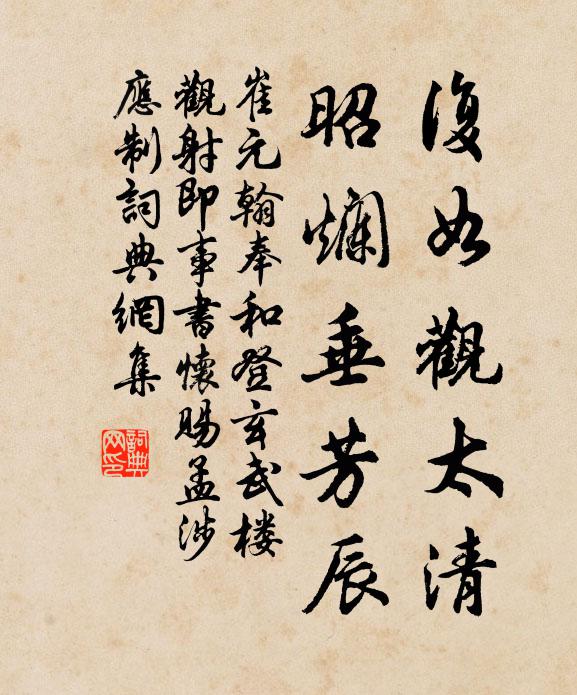 復如觀太清
昭爛垂芳辰
崔元翰奉和登玄武楼
觀射即事書懷賜孟涉
應制詞典網集
詞典
网印